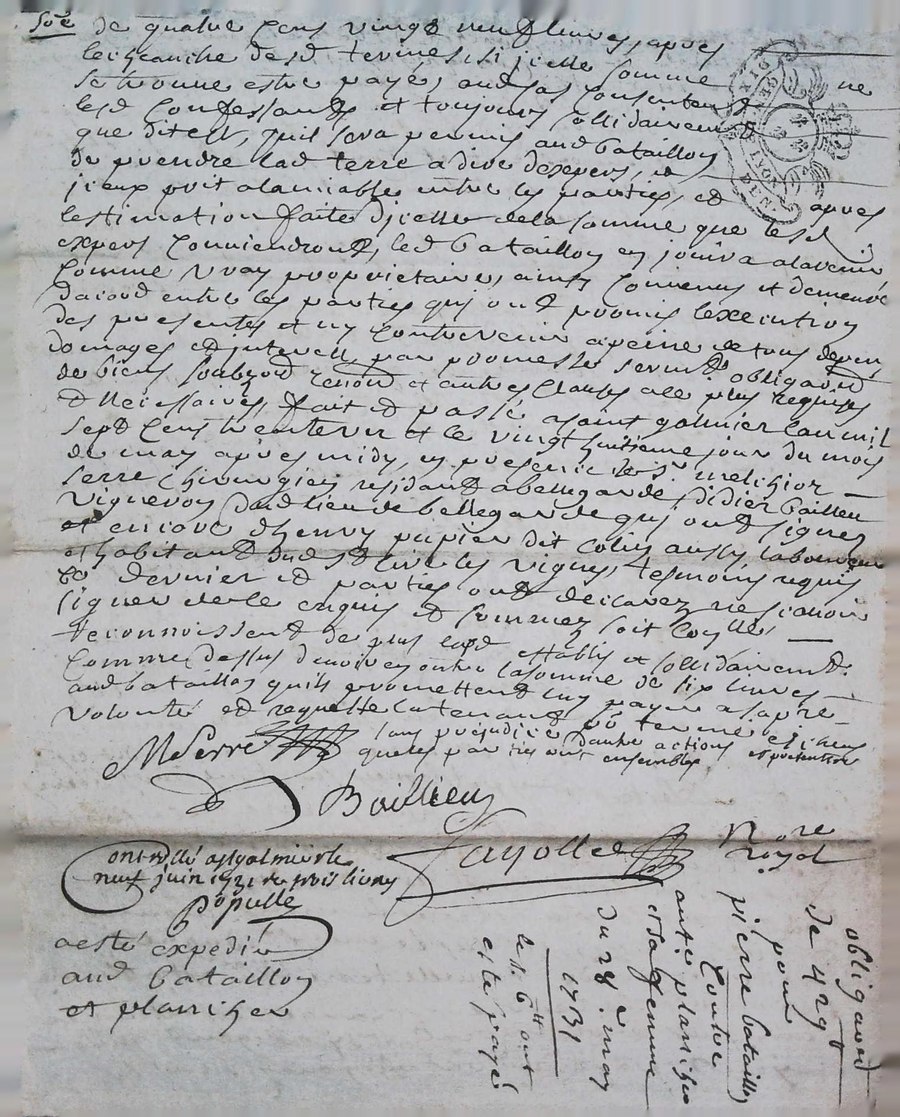 de quatre cens vingt neuf livres, apres
lescheanthe desd termes si jcelle somme ne
se trouve estre payé, aud cas consentent
lesd confessantz et toujours sollidairement
que dit est, quil sera permis aud bataillon
de prendre lad terre a dire dexpers, et
jceux soit alamiable entre les parties, et apres
lestimation faite djcelle de la somme que lesd
expers conviendront, led bataillon en jouira alavenir
comme vray proprietaire, ainsy convenus et demeuré
dacord entre les parties quj ont promis lexecution
des presentes et ny contrevenir apeine de tous depens
domages et interest, par promesse serment obligaōn
de biens soubzmi renon et autres clauses ale plus requises
et necessaires, fait et passé asaint galmier lan mil
sept cens trente et un et le vingt huitieme jour du mois
de may apres midy, en presence de sr melchior
serre chirurgien residant abellegarde, didier bailleu
vigneron dud lieu de bellegarde quj ont signés
et encore dhenry papier dit colin aussy laboureur
et habitant dud st les vignes, tesmoins requis
ce dernier et parties ont declarez ne scavoir
signer de ce enquis et sommez soit coyllé
reconnoissent de plus lesd establis et sollidairement
comme dessus devoir en outre la somme de six livres
aud bataillon quils promettent luy payer asa pre
volonté et requeste la tenant po terme echeus
sans prejudice dautre actions et pretentions
queles parties ont ensembles
MSerre
D Baillieu
Fayolle Nore royal
Controllé a st galmier le
neuf juin 1731 re trois livres
populle
aesté expedié
aud bataillon
et planchez
obligaōn
de 429
pour
pierre bataillon
Contre
antoi planchez
et sa femme
du 28e. may
1731
les 6ll ont
este payé